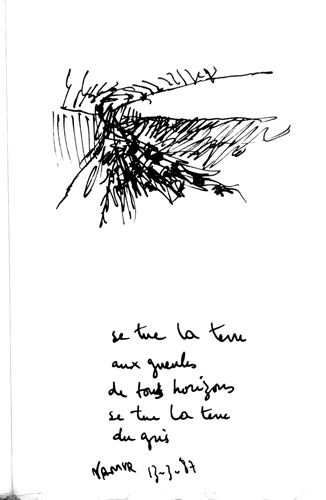 se tue la terre
aux gueules
de tous horizons
se tue la terre
du gris
NAMUR 13-3-87